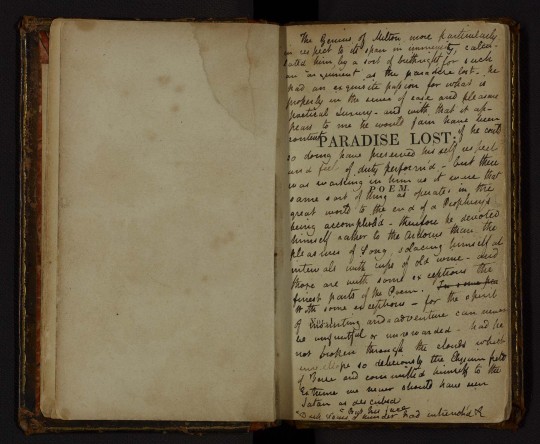 The Genius of Milton more particularly
in respect to its span in immensity, calcu-
lated him, by a sort of birthright, for such
an 'argument' as the paradise lost. he
had an exquisite passion for what is
properly in the sense of ease and pleasure
poetical Luxury - and with that it ap-
pears to me he would fain have been
content
PARADISE LOST:
if he could
so doing have preserved his self respect
and feel of duty perform'd - but there
was working in him as it were that
same sort of thing as operates in the
POEM.
great world to the end of a Prophecy's
being accomplish'd - therefore he devoted
himself rather to the Ardours than the
pleasures of Song, solacing himself at
intervals with cups of old wine - and
those are with some exceptions the
finest parts of the Poem.
With some exceptions - for the spirit
of mounting and adventure can never
be unfruitful or unrewarded - had he
not broken through the clouds which
envellope so deliciously the Elysian fields
of Verse and committed himself to the
Extreme we never should have seen
Satan as described
"But his face
Deep Scars of thunder had intrench'd &